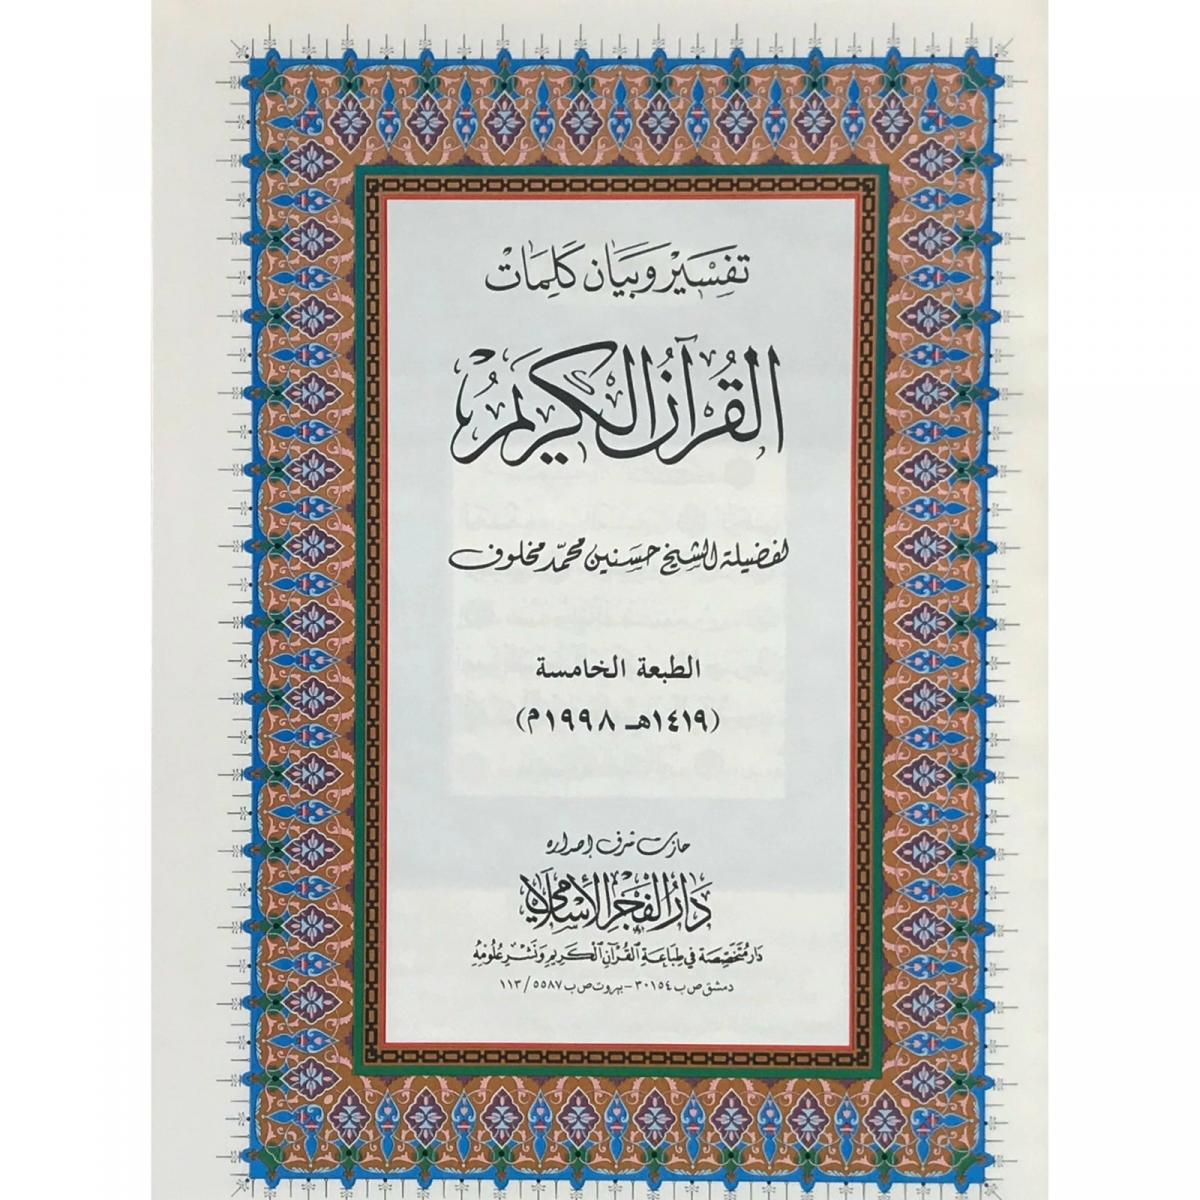 تفسير وبيان كلمات
القرآن الكريم
لفضيلة الشيخ حسنين محمد مخلوف
الطبعة الخامسة
(١٤١٩هـ ١٩٩٨م)
حازت شرف إصداره
دار الفجر الإسلامي
دار متخصصة في طباعة القرآن الكريم ونشر علومه
دمشق ص ب ٣٠١٥٤ - بيروت ص ب ٥٥٨٧ / ١١٣